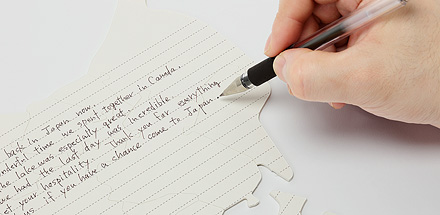 back in Japan now.
nderful time we spent together in Canada.
the lake was especially great.
we had the last day was incredible.
et your hospitality. Thank you for everything
us... if you have a chance come to Japan.